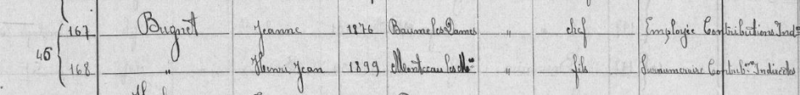 167 Bugnet Jeanne 1876 Baume les Dames " chef Employée Contributions Ind
46
168 " Henri Jean 1899 Montceau les M " fils Surnuméraire Contrib Indirectes